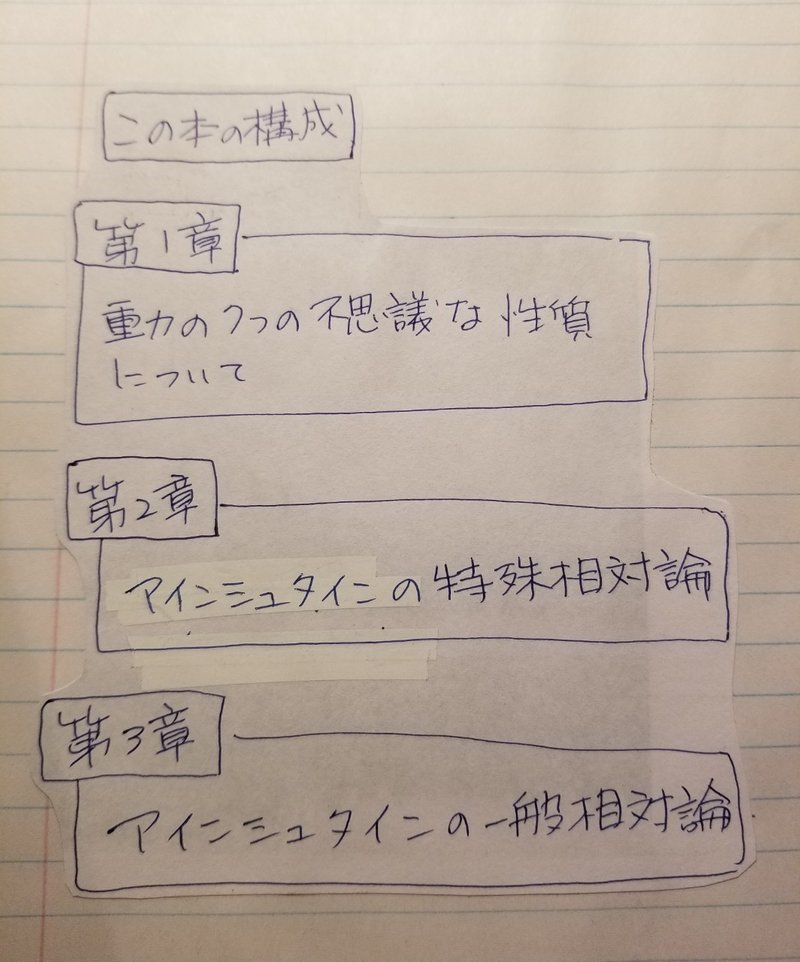 この本の構成
第1章
重力の7つの不思議な性質
について
第2章
アインシュタインの特殊相対論
第3章
アインシュタインの一般相対論